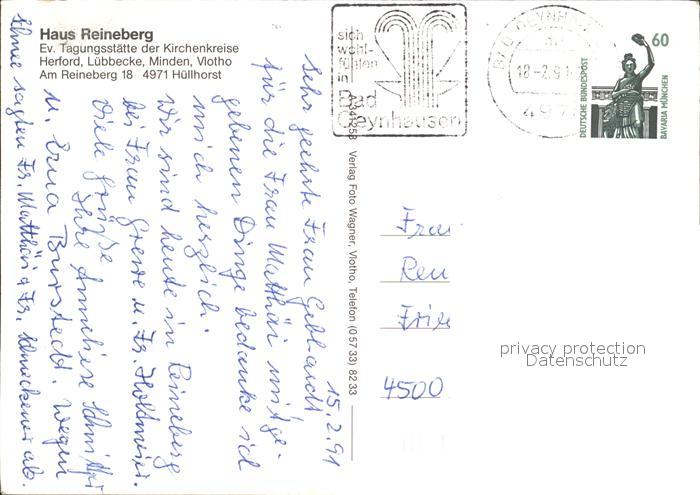 Haus Reineberg
Ev. Tagungsstätte der Kirchenkreise
Herford, Lübbecke, Minden, Vlotho
Am Reineberg 18 4971 Hüllhorst
sich
wohl-
fühlen
in
Bad
Oeynhausen
18-2.91
60
DEUTSCHE BUNDESPOST
BAVARIA MÜNCHEN
A341258 Verlag Foto Wagner, Vlotho, Telefon (0 57 33) 82 33
15.2.91
Sehr geehrte Frau Gebhardt
für die Frau Matthäi mitge-
gebenen Dinge bedanke ich
mich herzlich.
Wir sind heute in Reineberg
bei Frau Grewe u. Fr. Holtmeier.
Viele Grüße
Ihre Anneliese
u. Erna Wegen
sagten Fr. Matthäi u. Fr. ab.
Frau
Ren
Frie
4500
privacy protection
Datenschutz